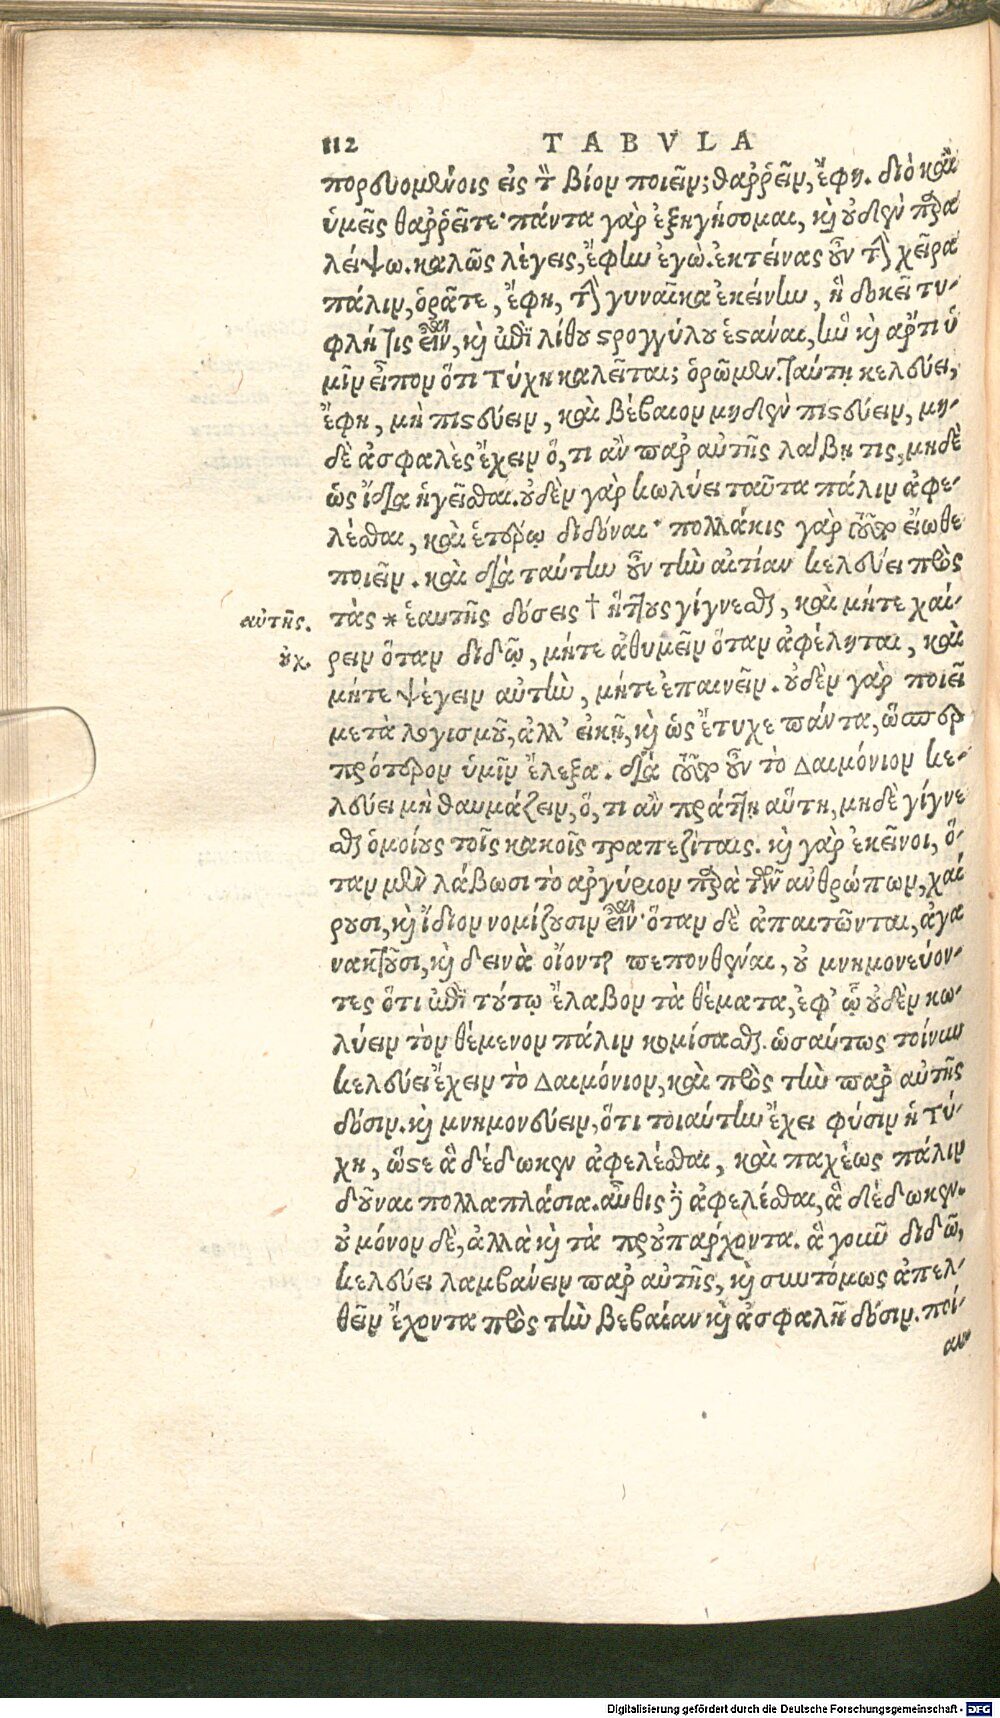 112 TABVLA
πορευομένοις εἰς τὸν βίον ποιεῖν; θαῤῥεῖν, ἔφη. διὸ καὶ
ὑμεῖς θαῤῥεῖτε· πάντα γὰρ ἐξηγήσομαι, καὶ οὐδὲν παρα
λείψω. καλῶς λέγεις, ἔφην ἐγώ. ἐκτείνας οὖν τὴν χεῖρα
πάλιν, ὁρᾶτε, ἔφη, τὴν γυναῖκα ἐκείνην, ἣ δοκεῖ τυ-
φλή τις εἶναι, καὶ ἐπὶ λίθου στρογγύλου ἑστάναι, ἣν καὶ ἄρτι ὑ
μῖν εἶπον ὅτι Τύχη καλεῖται; ὁρῶμεν. ταύτῃ κελεύει,
ἔφη, μὴ πιστεύειν, καὶ βέβαιον μηδὲν πιστεύειν, μη-
δὲ ἀσφαλὲς ἔχειν ὅ, τι ἂν παρ αὐτῆς λάβῃ τις, μηδὲ
ὡς ἴδια ἡγεῖσθαι. οὐδὲν γὰρ κωλύει ταῦτα πάλιν ἀφε-
λέσθαι, καὶ ἑτέρῳ διδόναι· πολλάκις γὰρ τοῦτο εἴωθε
ποιεῖν. καὶ διὰ ταύτην οὖν τὴν αἰτίαν κελεύει πρὸς
αὐτῆς. τὰς * ἑαυτῆς δόσεις † ἥττους γίγνεσθαι, καὶ μήτε χαί-
οὐχ. ρειν ὅταν διδῷ, μήτε ἀθυμεῖν ὅταν ἀφέληται, καὶ
μήτε ψέγειν αὐτὴν, μήτε ἐπαινεῖν. οὐδὲν γὰρ ποιεῖ
μετὰ λογισμοῦ, ἀλλ' εἰκῇ, καὶ ὡς ἔτυχε πάντα, ὥσπερ
πρότερον ὑμῖν ἔλεξα. διὰ τοῦτο οὖν τὸ Δαιμόνιον κε-
λεύει μὴ θαυμάζειν, ὅ, τι ἂν πράττῃ αὕτη, μηδὲ γίγνε
σθαι ὁμοίους τοῖς κακοῖς τραπεζίταις. καὶ γὰρ ἐκεῖνοι, ὅ-
ταν μὲν λάβωσι τὸ ἀργύριον παρὰ τῶν ἀνθρώπων, χαί
ρουσι, καὶ ἴδιον νομίζουσιν εἶναι· ὅταν δὲ ἀπαιτῶνται, ἀγα
νακτοῦσι, καὶ δεινὰ οἴονται πεπονθέναι, οὐ μνημονεύον-
τες ὅτι ἐπὶ τούτῳ ἔλαβον τὰ θέματα, ἐφ' ᾧ οὐδὲν κω-
λύειν τὸν θέμενον πάλιν κομίσασθαι. ὡσαύτως τοίνυν
κελεύει ἔχειν τὸ Δαιμόνιον, καὶ πρὸς τὴν παρ αὐτῆς
δόσιν. καὶ μνημονεύειν, ὅτι τοιαύτην ἔχει φύσιν ἡ Τύ-
χη, ὥστε ἃ δέδωκεν ἀφελέσθαι, καὶ παχέως πάλιν
δοῦναι πολλαπλάσια. αὖθις δὲ ἀφελέσθαι, ἃ δέδωκεν.
οὐ μόνον δὲ, ἀλλὰ καὶ τὰ προϋπάρχοντα. ἃ γοῦν διδῶ,
κελεύει λαμβάνειν παρ αὐτῆς, καὶ συντόμως ἀπελ-
θεῖν ἔχοντα πρὸς τὴν βεβαίαν καὶ ἀσφαλῆ δόσιν. ποί-
αν
Digitalisierung gefördert durch die Deutsche Forschungsgemeinschaft - DFG